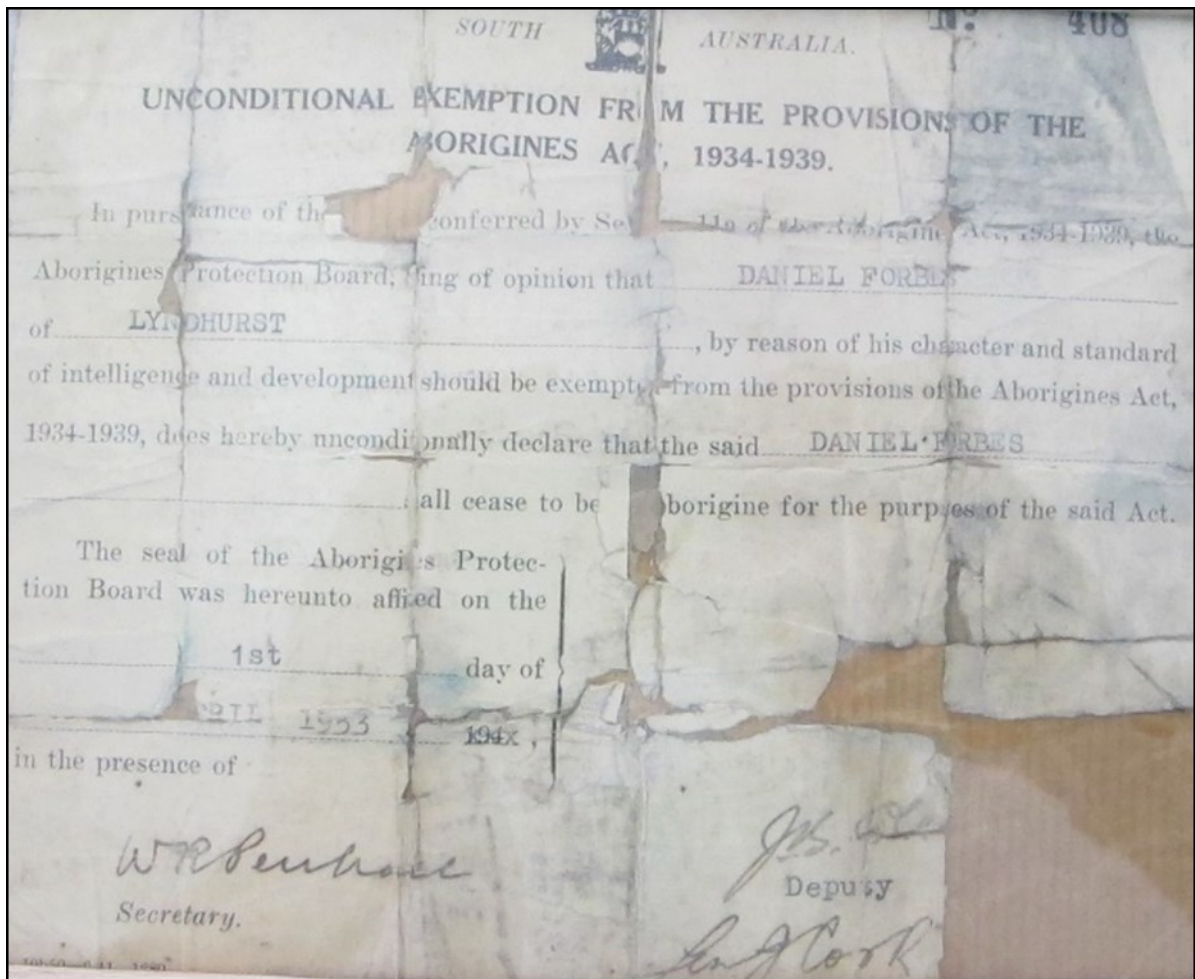 SOUTH AUSTRALIA.
No. 408
UNCONDITIONAL EXEMPTION FROM THE PROVISIONS OF THE
ABORIGINES ACT, 1934-1939.
In pursuance of the conferred by of the Aborigines Act, 1934-1939, the
Aborigines Protection Board, being of opinion that DANIEL FORBES
of LYNDHURST , by reason of his character and standard
of intelligence and development should be exempted from the provisions of the Aborigines Act,
1934-1939, does hereby unconditionally declare that the said DANIEL FORBES
shall cease to be aborigine for the purposes of the said Act.
The seal of the Aborigines Protec-
tion Board was hereunto affixed on the
1st day of
1953 194x,
in the presence of
W R Penhall
Secretary.
Deputy